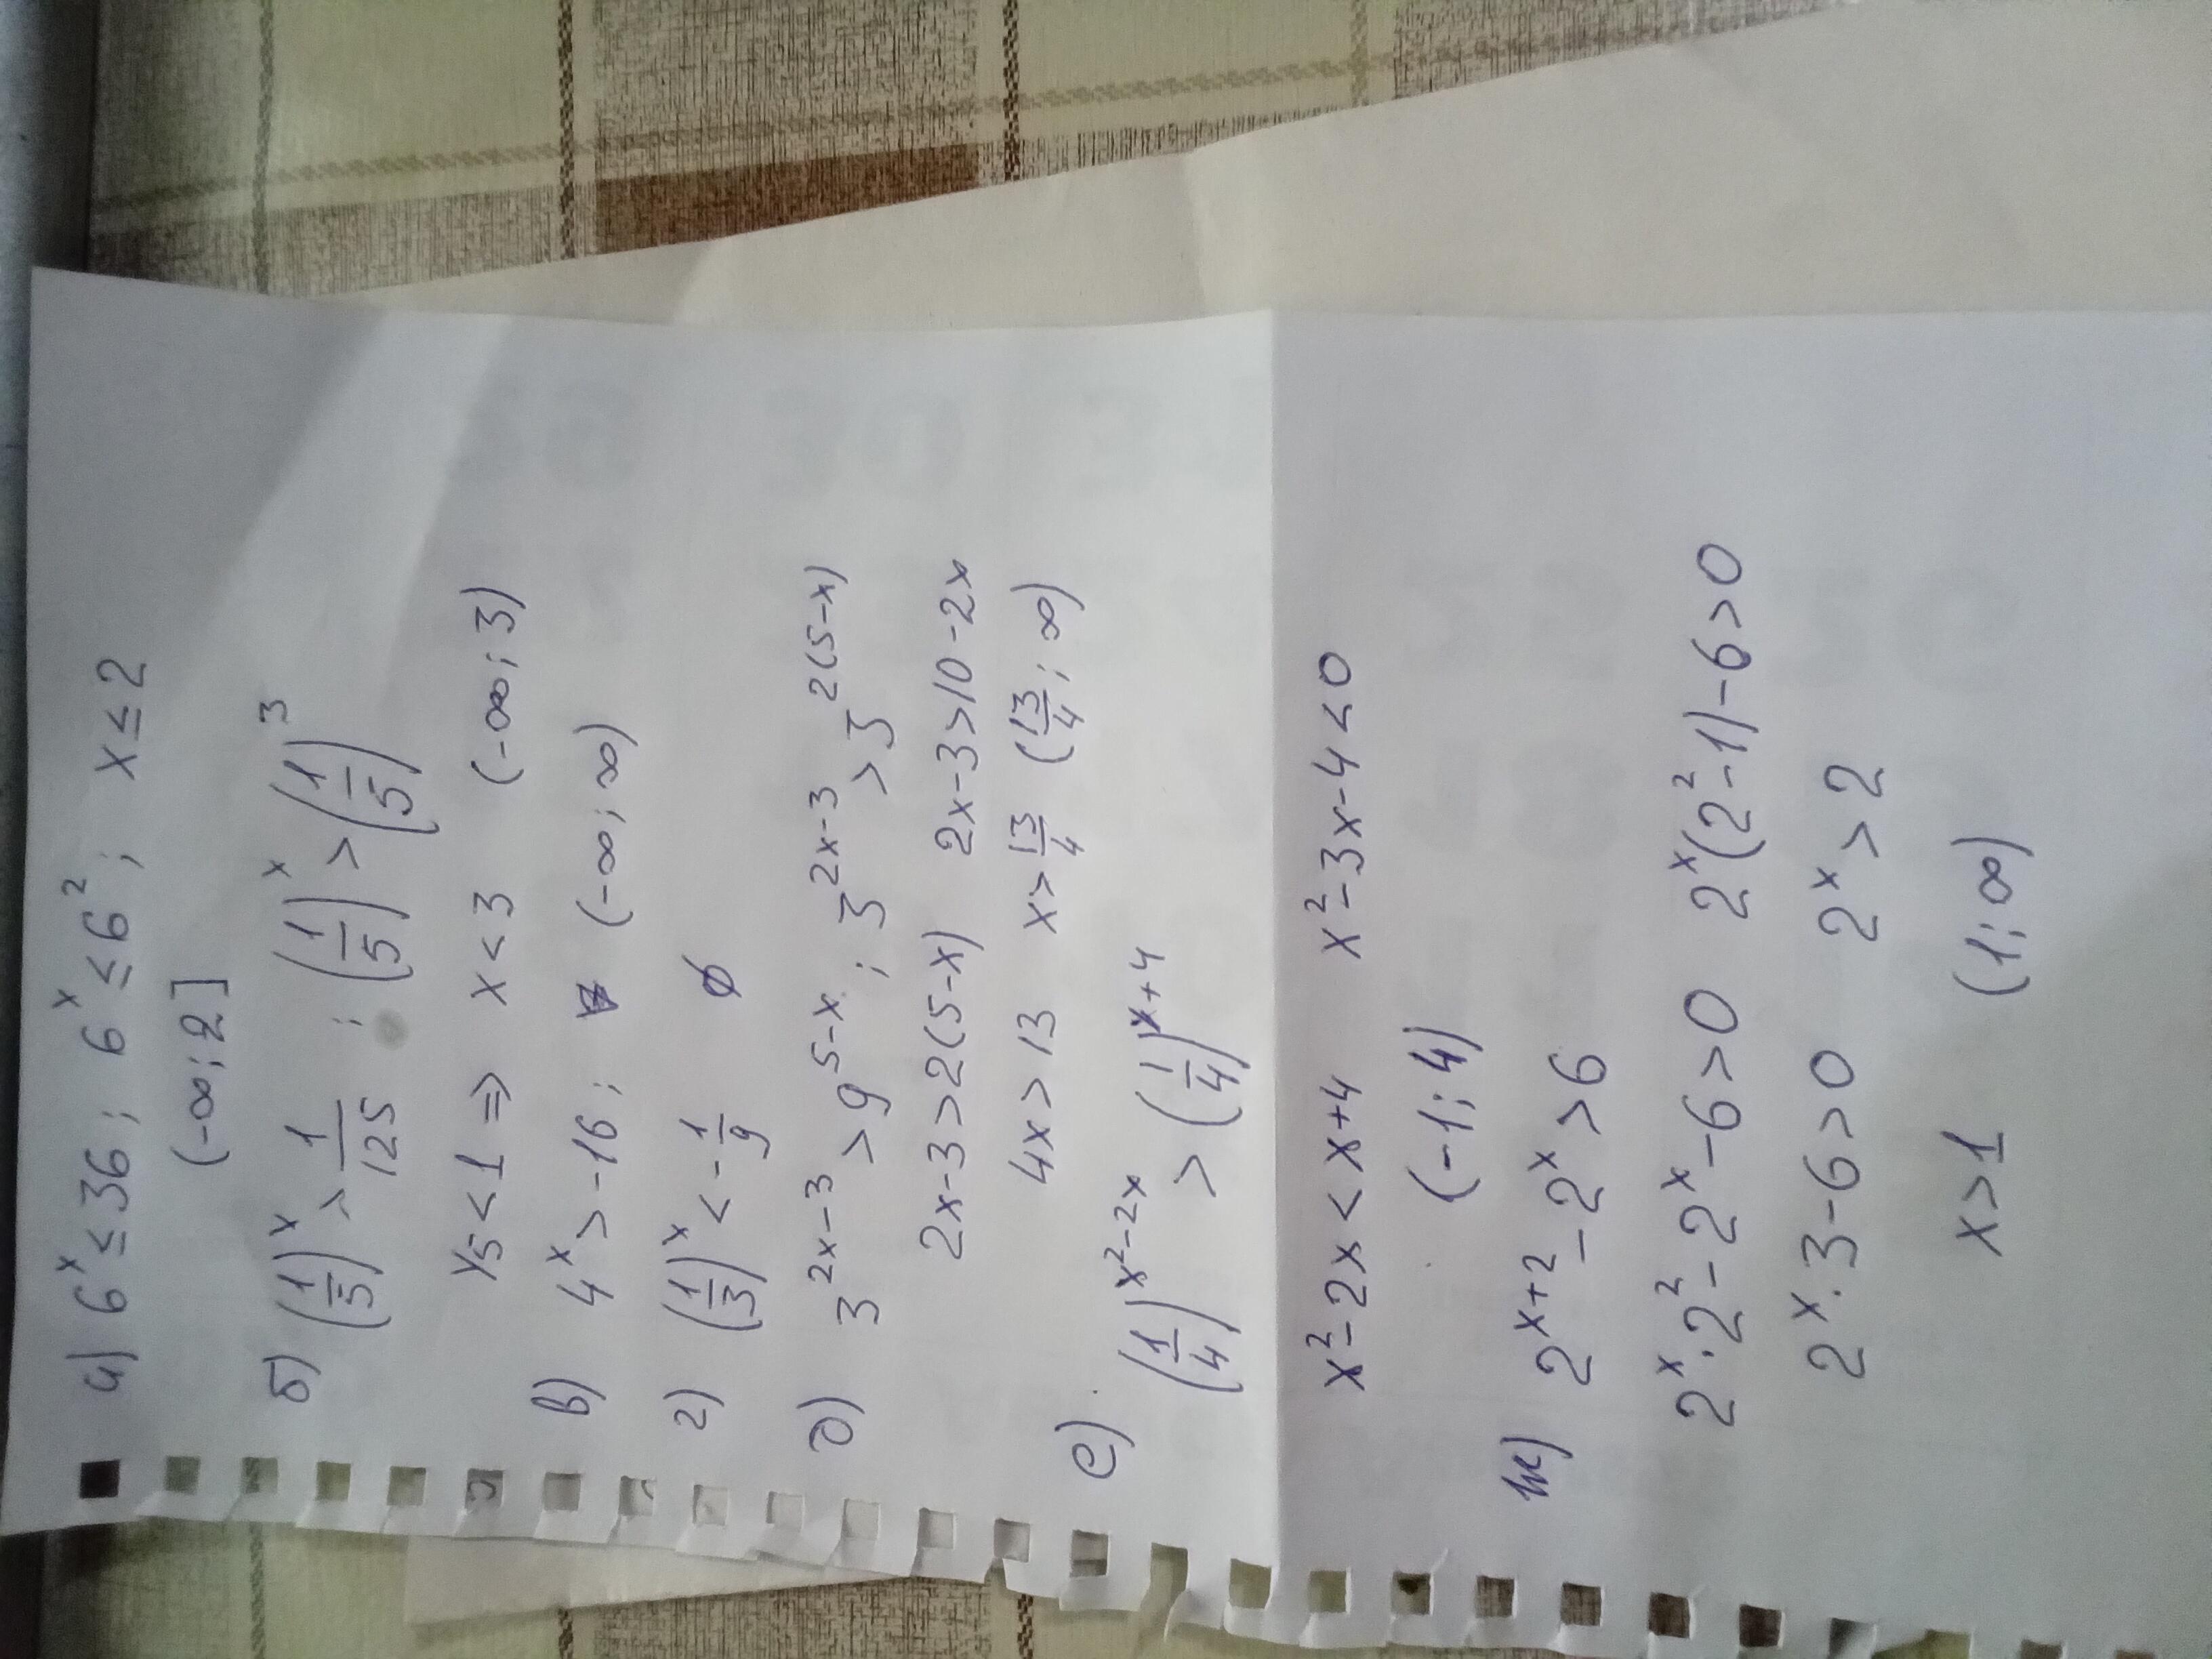 а) 6^x ≤ 36; 6^x ≤ 6^2; x ≤ 2
(-∞; 2]
б) (1/5)^x > 1/125; (1/5)^x > (1/5)^3
1/5 < 1 ⇒ x < 3 (-∞; 3)
в) 4^x > -16; ∀ (-∞; ∞)
г) (1/3)^x < -1/9 ∅
д) 3^(2x-3) > 9^(5-x); 3^(2x-3) > 3^(2(5-x)
2x-3 > 2(5-x) 2x-3 > 10-2x
4x > 13 x > 13/4 (13/4; ∞)
е) (1/4)^(x^2-2x) > (1/4)^(x+4)
x^2-2x < x+4 x^2-3x-4 < 0
(-1; 4)
ж) 2^(x+2) - 2^x > 6
2^x · 2^2 - 2^x - 6 > 0 2^x(2^2-1)-6 > 0
2^x · 3 - 6 > 0 2^x > 2
x > 1 (1; ∞)